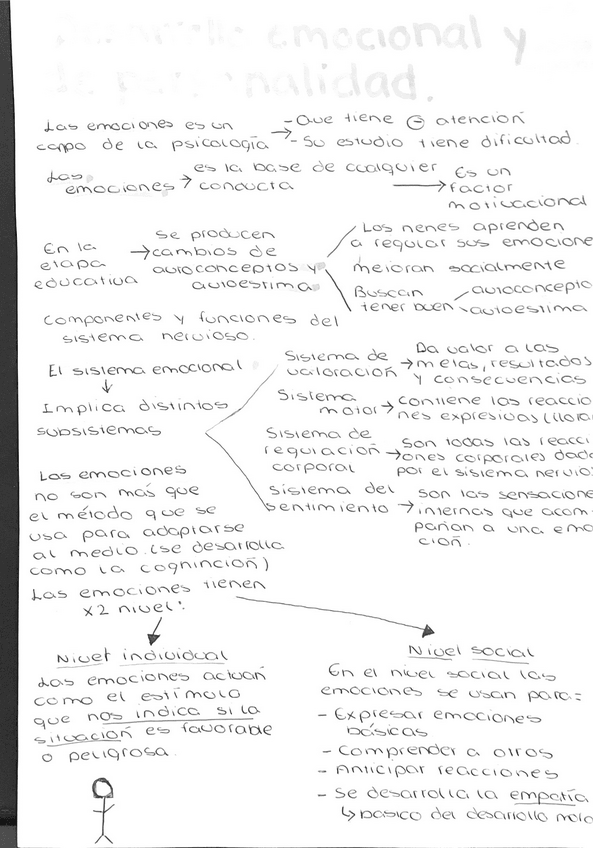 Desarrollo emocional y
de personalidad.
Las emociones es un campo de la psicología → - Que tiene ⊖ atención
- Su estudio tiene dificultad
Las emociones → es la base de cualquier conducta → Es un factor motivacional
En la etapa educativa → Se producen cambios de autoconceptos y autoestima
Los nenes aprenden
a regular sus emocione
mejoran socialmente
Buscan tener buen
autoconcepto
autoestima
Componentes y funciones del
sistema nervioso.
El sistema emocional
↓
Implica distintos
subsistemas
Sistema de valoración → Da valor a las
metas, resultados
y consecuencias
Sistema motor → contiene las reaccio
nes expresivas (llora
Sistema de regulación corporal → Son todas las reacci
ones corporales dada
por el sistema nervio
Sistema del sentimiento → Son las sensacione
internas que acom-
pañan a una emo
ción.
Las emociones
no son más que
el método que se
usa para adaptarse
al medio. (se desarrolla
como la cognición)
Las emociones tienen
x2 nivel:
Nivel individual
Las emociones actúan
como el estímulo
que nos indica si la
situación es favorable
o peligrosa.
Nivel social
En el nivel social las
emociones se usan para:
- Expresar emociones
básicas
- Comprender a otros
- Anticipar reacciones
- Se desarrolla la empatía
↳ basico del desarrollo